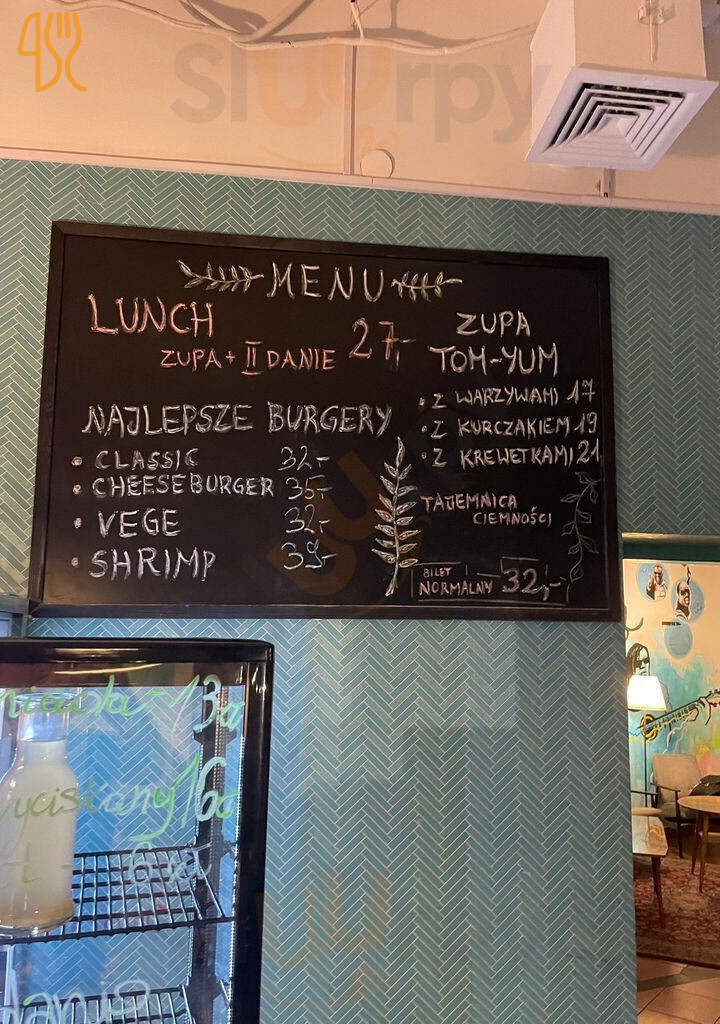 Sluurpy
MENU
LUNCH 27,-
ZUPA + II DANIE
NAJLEPSZE BURGERY
• CLASSIC 32,-
• CHEESEBURGER 35,-
• VEGE 32,-
• SHRIMP 39,-
ZUPA
TOM-YUM
• Z WARZYWAMI 17
• Z KURCZAKIEM 19
• Z KREWETKAMI 21
TAJEMNICA
CIEMNOŚCI
BILET
NORMALNY 32,-